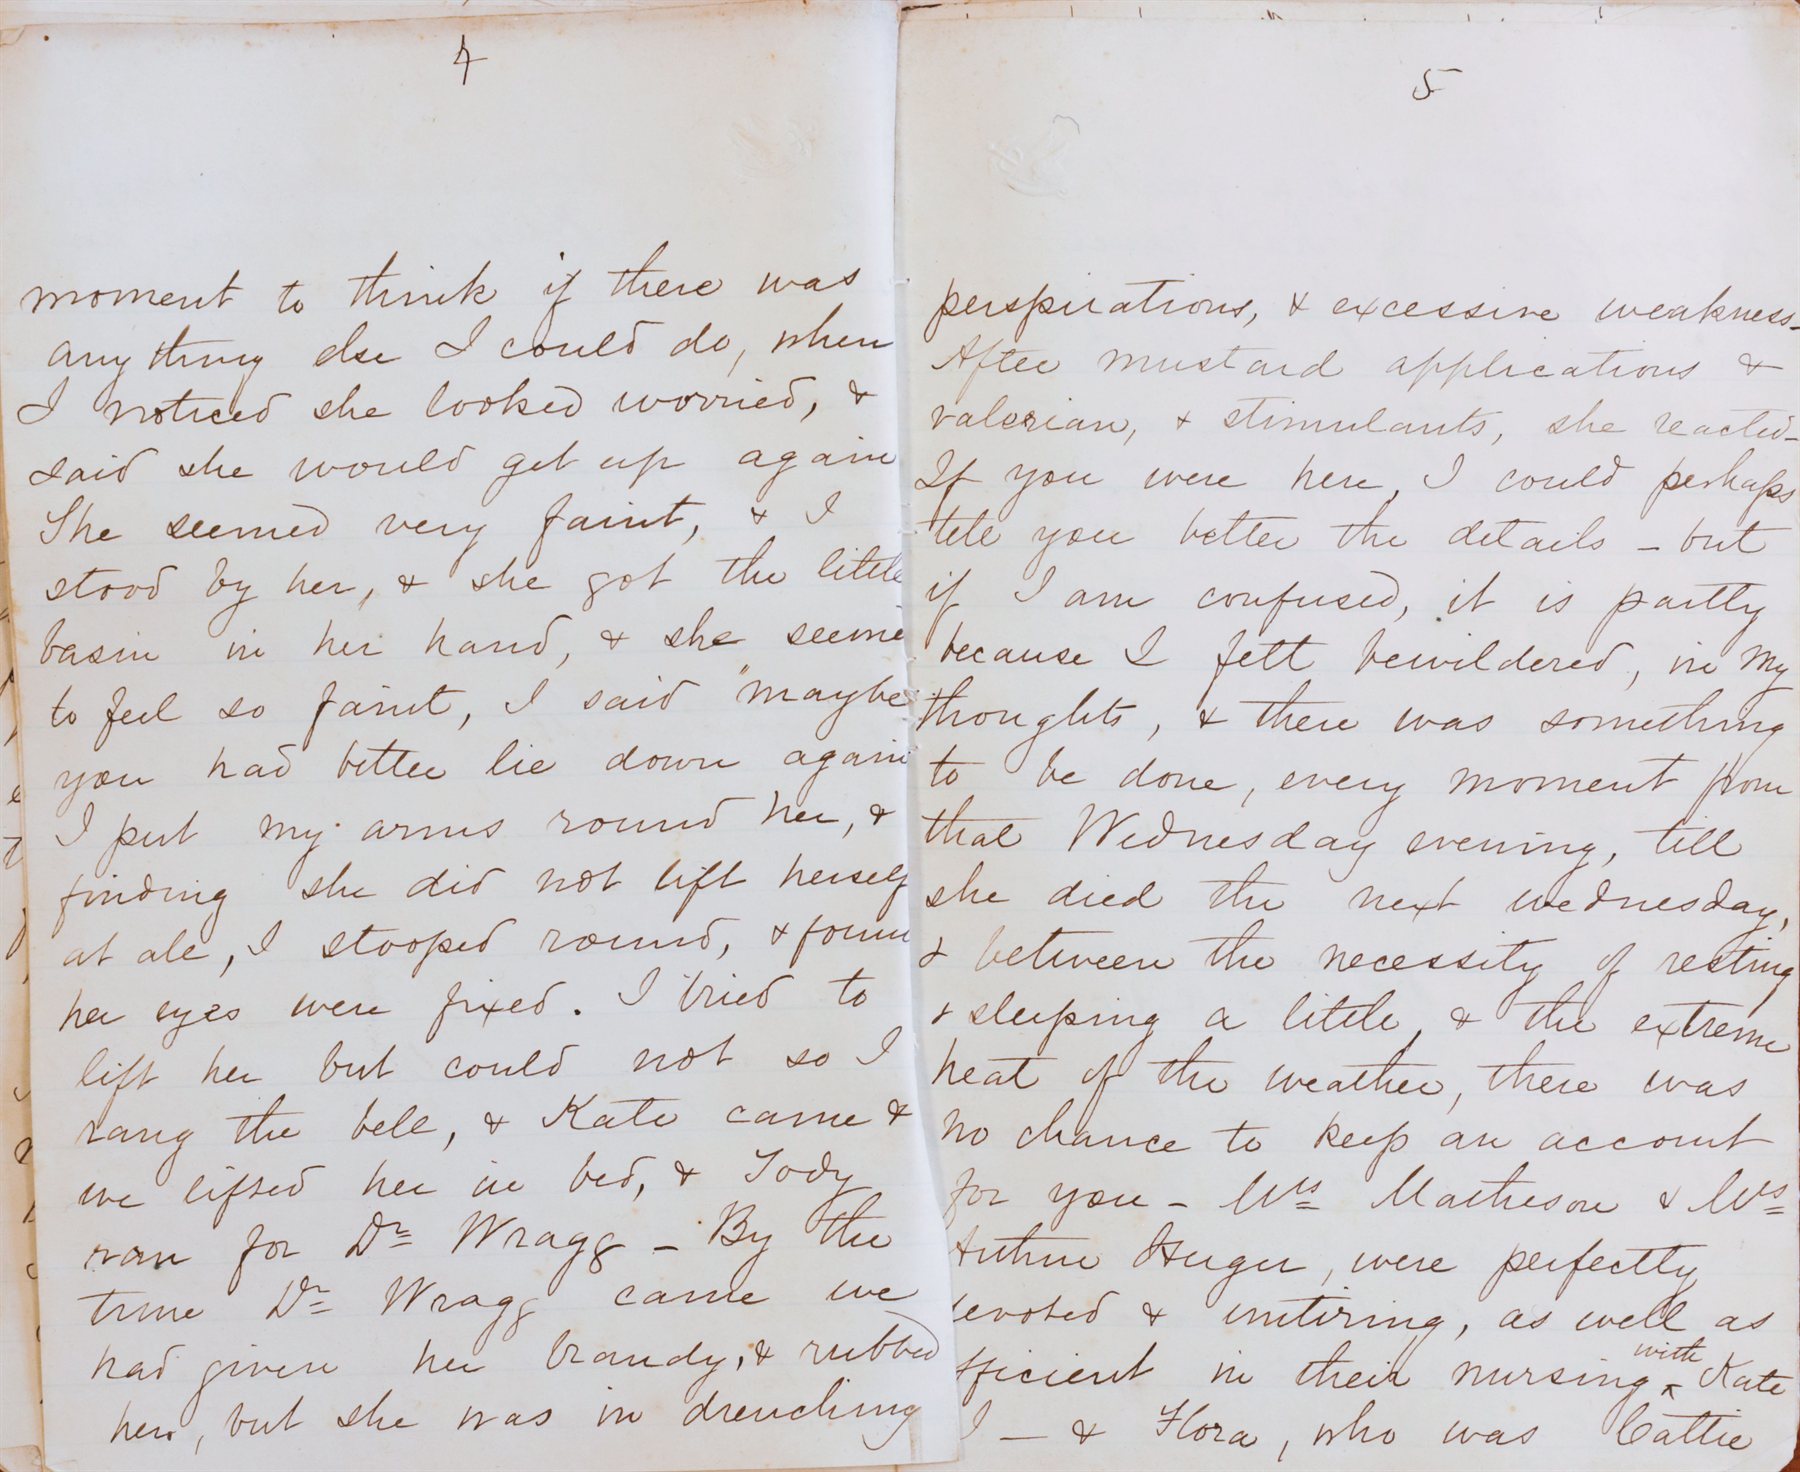 4
moment to think if there was
any thing else I could do, when
I noticed she looked worried, &
said she would get up again
She seemed very faint, & I
stood by her, & she got the little
basin in her hand, & she seemed
to feel so faint, I said "maybe
you had better lie down again
I put my arms round her, &
finding she did not lift herself
at all, I stooped round, & found
her eyes were fixed. I tried to
lift her but could not so I
rang the bell, & Kate came &
we lifted her in bed, & Tody
ran for Dr Wragg - By the
time Dr Wragg came we
had given her brandy, & rubbed
her, but she was in drenching
5
perspirations, & excessive weakness -
After mustard applications &
valerian, & stimulants, she reacted -
If you were here, I could perhaps
tell you better the details - but
if I am confused, it is partly
because I felt bewildered, in my
thoughts, & there was something
to be done, every moment from
that Wednesday evening, till
she died the next Wednesday,
& between the necessity of resting
& sleeping a little, & the extreme
heat of the weather, there was
no chance to keep an account
for you - Mrs Matheson & Mrs
Arthur Huger, were perfectly
devoted & untiring, as well as
efficient in their nursing with Kate
I - & Flora, who was Cattie